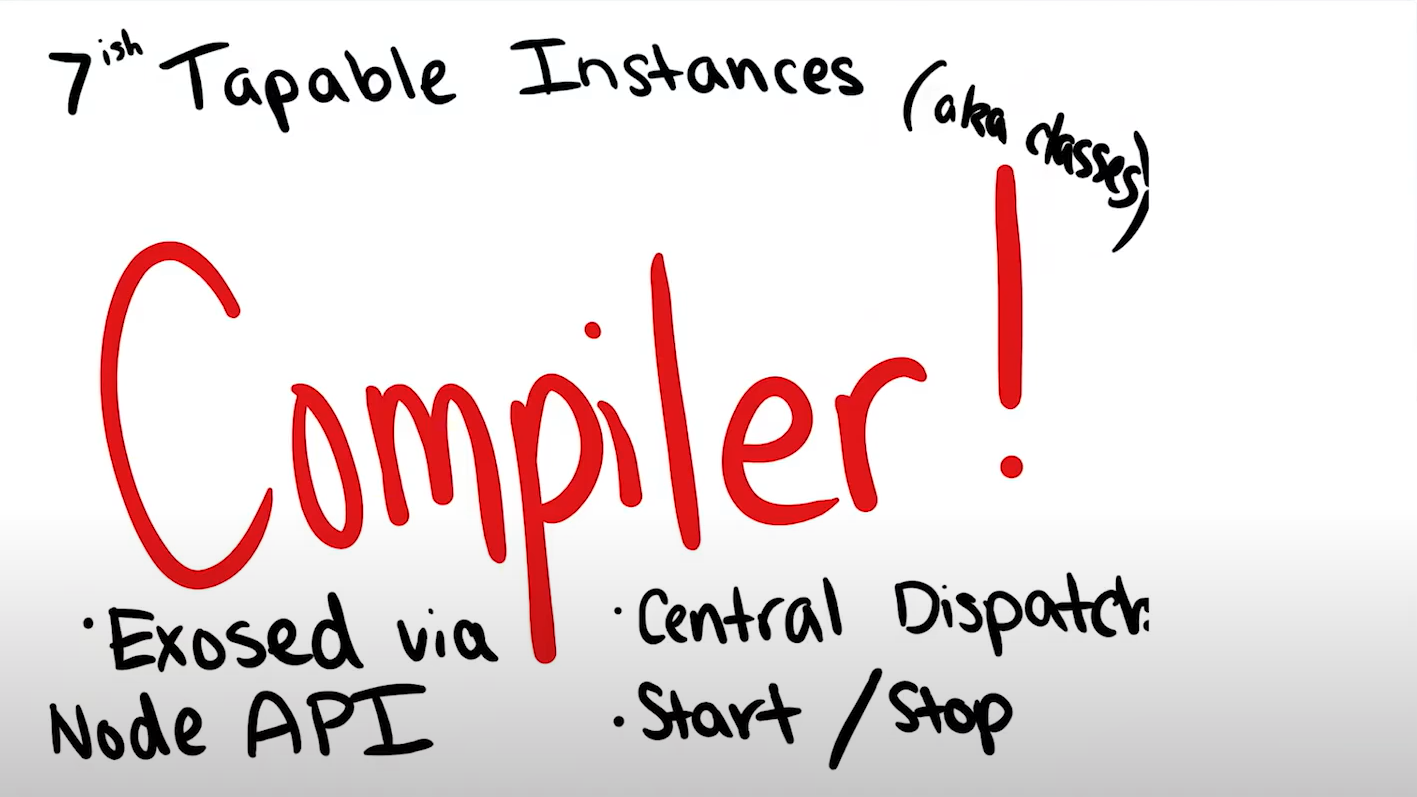 7ish Tapable Instances (aka classes!)
Compiler!
· Exosed via
Node API
· Central Dispatch
· Start / Stop